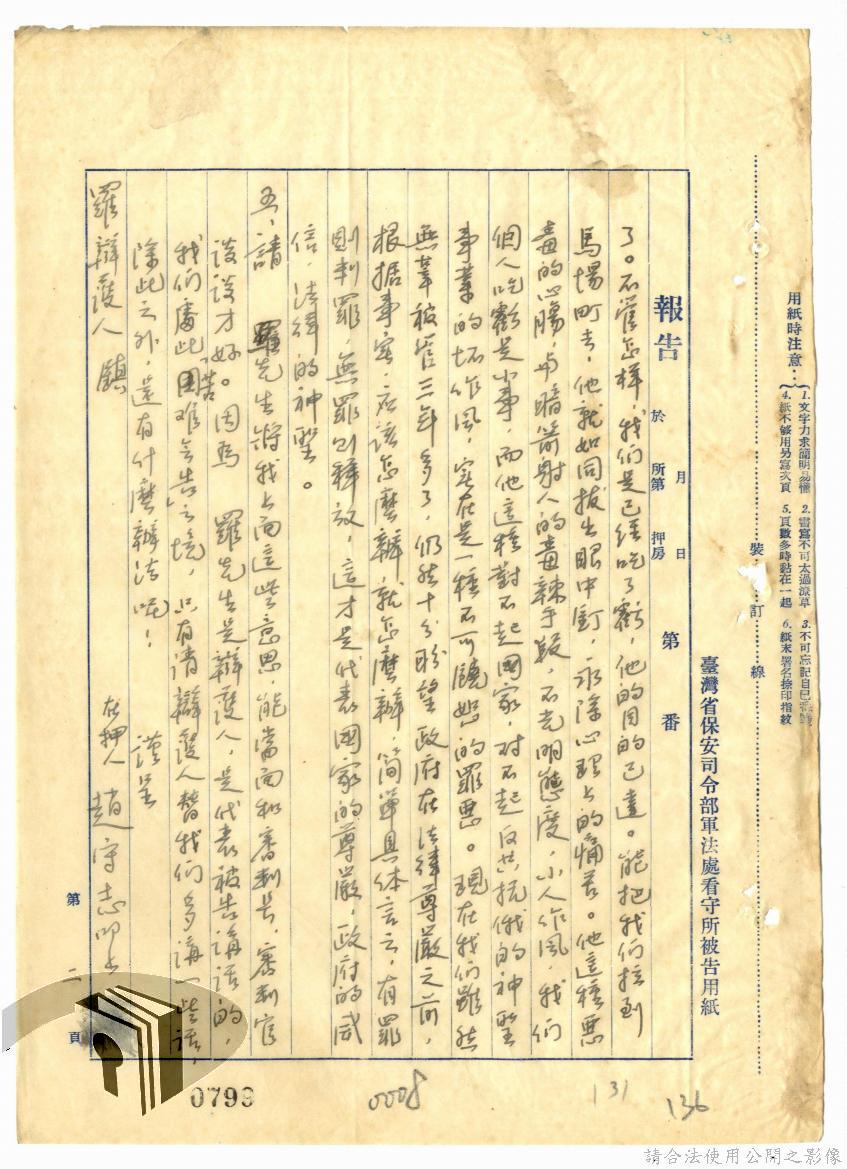 用紙時注意：
1.文字力求簡明易懂 2.書寫不可太過潦草 3.不可忘記自己
4.紙不够用另寫次頁 5.頁數多時黏在一起 6.紙末署名捺印指紋
裝 訂 線
臺灣省保安司令部軍法處看守所被告用紙
報告 於 月 日 所第 押房 第 番
了。不管怎样，我们是已経吃了虧，他的目的已達。能把我们拉到
馬場町去，他就如同拔出眼中釘，永除心理上的痛苦。他這種惡
毒的心腸，与暗箭射人的毒辣手段，不光明態度，小人作風，我们
個人吃虧是小事，而他這種對不起國家，对不起反共抗俄的神聖
事業的坏作風，实在是一種不可饒恕的罪惡。現在我们雖然
無辜被管三年多了，仍然十分盼望政府在法律尊嚴之前，
根据事实，应該怎麽辦就怎麽辦，简单具体言之，有罪
則判罪，無罪则釋放，這才是代表國家的尊嚴，政府的威
信，法律的神聖。
五、請 羅先生将我上面這些意思，能當面和審判長，審判官
談談才好。因為 羅先生是辯護人，是代表被告講話的，
我们處此困难苦告之境，只有請辯護人替我们多講一些話，
除此之外，還有什麽辦法呢！ 謹呈
羅辯護人 鎮
在押人 趙守志叩上
第 二 頁
0799
0008
131
136
請合法使用公開之影像